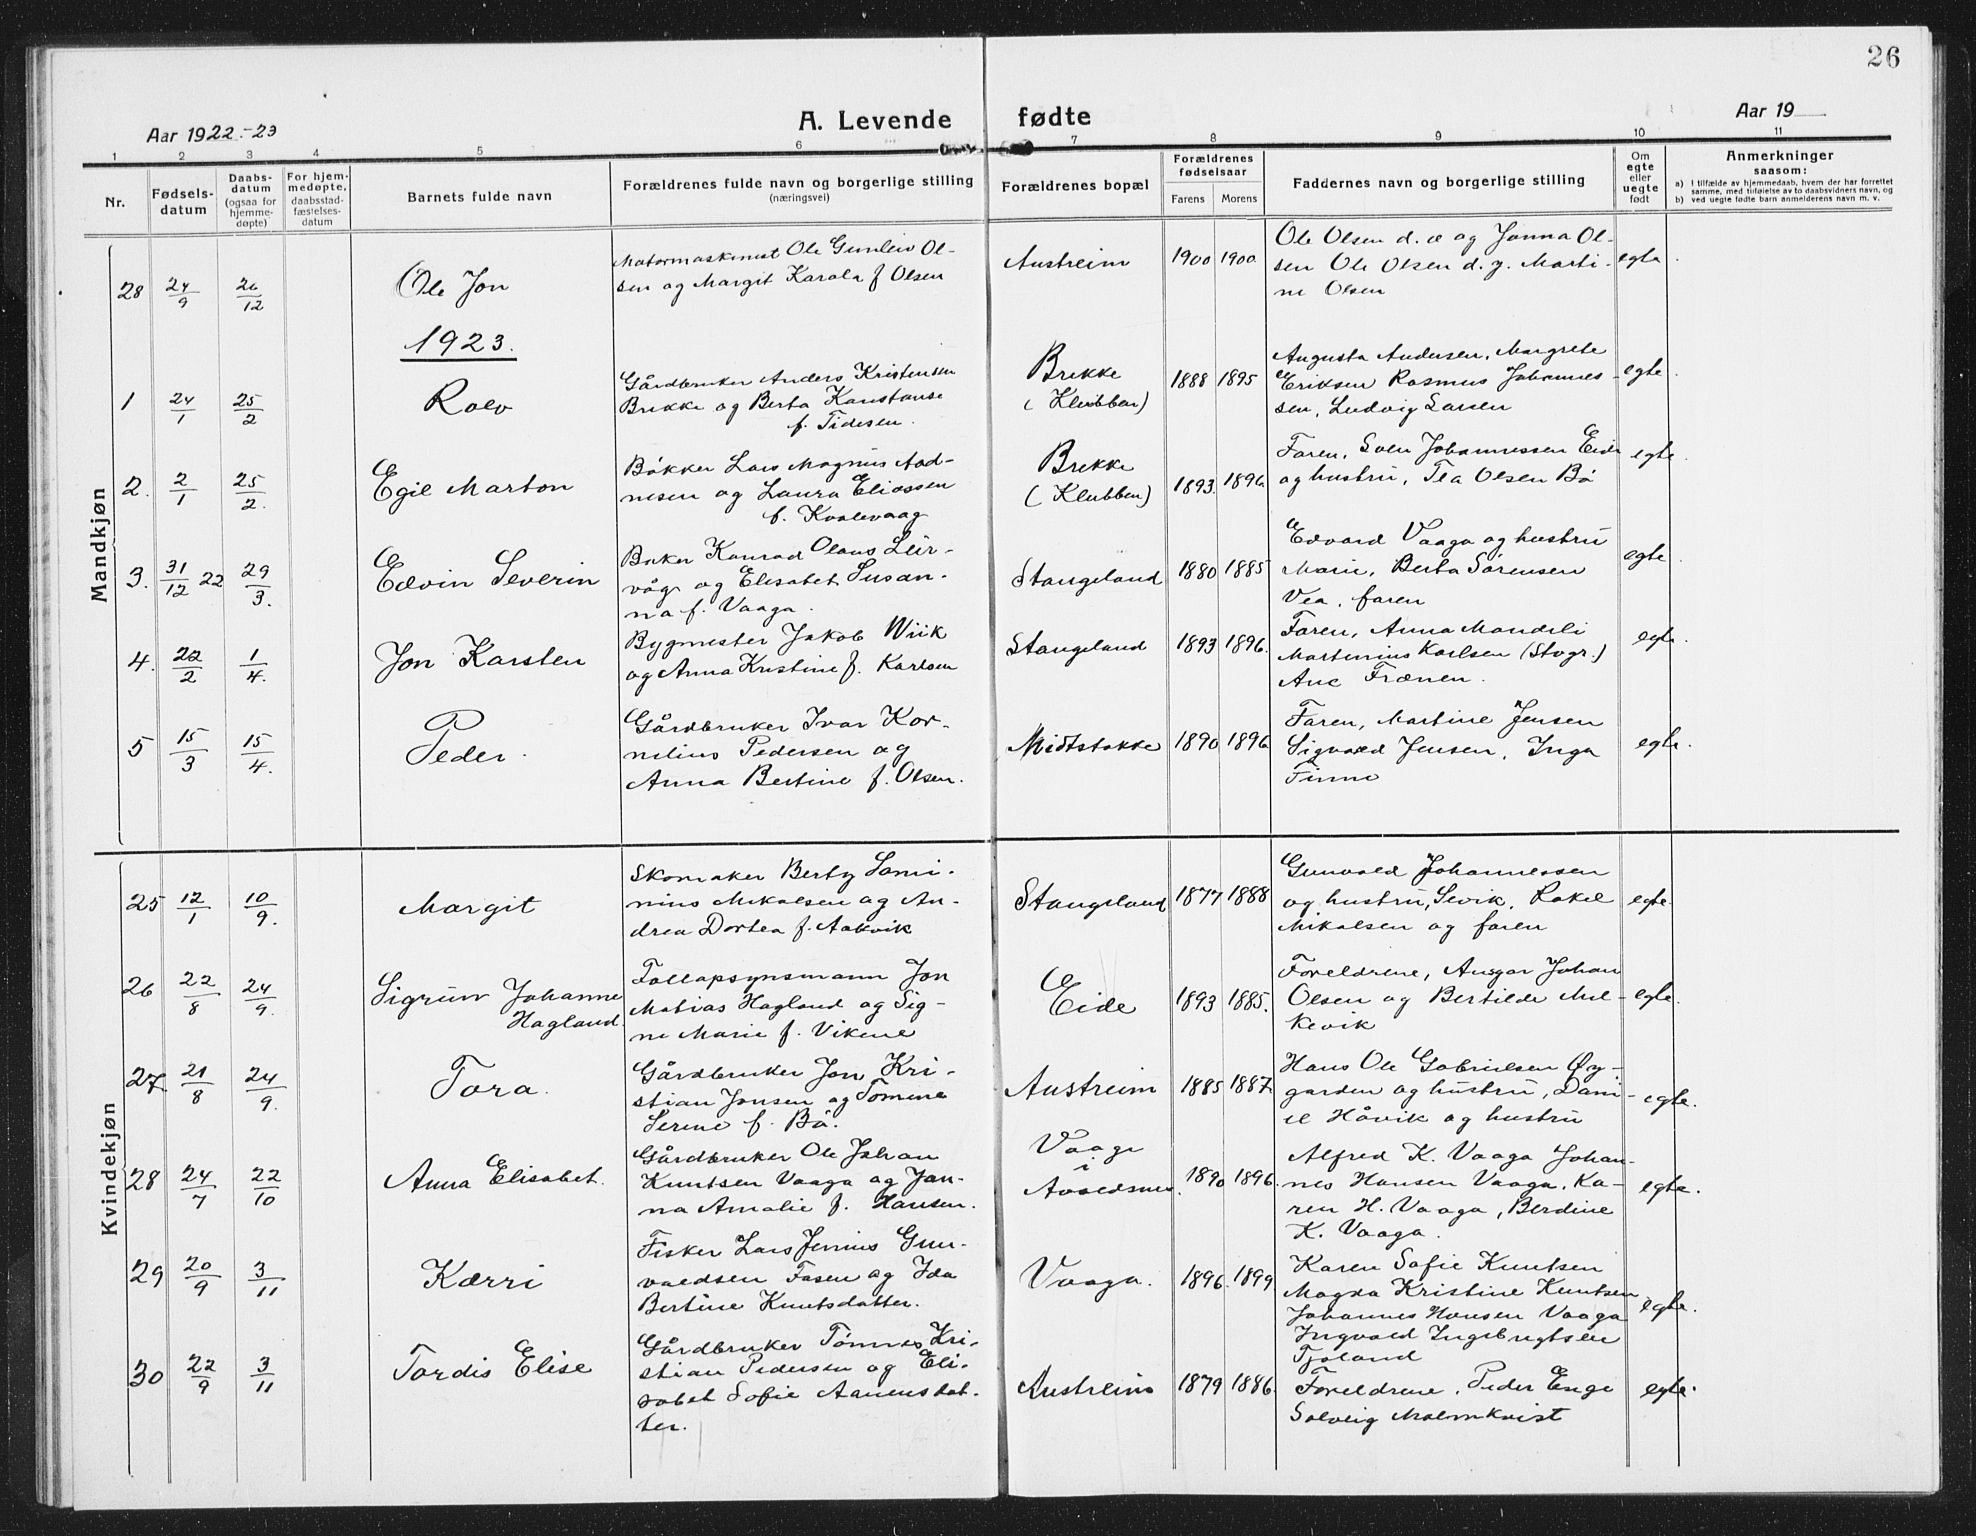 26
Aar 1922.-23
A. Levende fødte
Aar 19
1 2 3 4 5 6 7 8 9 10 11
Nr.
Fødsels-
datum
Daabs-
datum
(ogsaa for
hjemme-
døpte)
For hjem-
medøpte,
daabsstad-
fæstelses-
datum
Barnets fulde navn
Forældrenes fulde navn og borgerlige stilling
(næringsvei)
Forældrenes bopæl
Forældrenes
fødselsaar
Farens Morens
Faddernes navn og borgerlige stilling
Om
egte
eller
uegte
født
Anmerkninger
saasom:
a) I tilfælde av hjemmedaab, hvem der har forrettet
samme, med tilføielse av to daabsvidners navn, og
b) ved uegte fødte barn anmelderens navn m. v.
Mandkjøn
28 24/9 26/12
Ole Jon
Motormaskinist Ole Gunleiv Ol-
sen og Margit Karola f Olsen
Austreim
1900 1900
Ole Olsen d. e og Jonna Ol-
sen Ole Olsen d. y. Marti-
ne Olsen
egte
1923.
1 24/1 25/2
Rolv
Gårdbruker Anders Kristensen
Brekke og Berta Konstanse
f. Tidesen.
Brekke
(Klubben)
1888 1895
Augusta Andersen, Margrete
Eriksen Rasmus Johannes-
sen, Ludvig Larsen
egte
2. 2/1 25/2.
Egil Marton
Bakker Lars Magnus Aad-
nesen og Laura Eliassen
f. Kvalevaag
Brekke
(Klubben)
1893. 1896.
Faren, Sven Johannessen Eide
og hustru, Tea Olsen Bø
egte.
3. 31/12 22 29/3.
Edvin Severin
Baker Konrad Olaus Leir-
våg og Elisabet Susan-
na f. Vaaga.
Stangeland
1880 1885
Edvard Vaaga og hustru
Marie, Berta Sørensen
Vea, faren
egte
4. 22/2 1/4.
Jon Karsten
Bygmester Jakob Wiik
og Anna Kristine f. Karlsen
Stangeland
1893 1896.
Faren, Anna Mandeli
Martinius Karlsen (Stvgr.)
Ane Frænen.
egte.
5 15/3 15/4.
Peder.
Gårdbruker Ivar Kor-
nelius Pedersen og
Anna Bertine f. Olsen.
Midtstokke
1890 1896
Faren, Martine Jensen
Sigvald Jensen, Inga
Finne
egte.
Kvindekjøn
25 12/1 10/9.
Margit
Skomaker Berty Sami-
nius Mikalsen og An-
drea Dortea f. Aakvik
Stangeland
1877 1888
Gunvald Johannessen
og hustru, Sevik, Rakel
Mikalsen og faren
egte
26 22/8 24/9.
Sigrun Johanne
Hagland.
Tollopsynsmann Jon
Matias Hagland og Sig-
ne Marie f. Vikene
Eide
1893 1885.
Foreldrene, Ansgar Johan
Olsen og Bertilde Mul-
kevik
egte.
27. 21/8 24/9.
Tora.
Gårdbruker Jon Kri-
stian Jonsen og Tomine
Serine f. Bø.
Austreim
1885 1887.
Hans Ole Gabrielsen Øy-
garden og hustru, Dani-
el Håvik og hustru
egte.
28 24/7 22/10
Anna Elisabet.
Gårdbruker Ole Johan
Knutsen Vaaga og Jon-
na Amalie f. Hansen.
Vaage
i
Avaldsnes.
1890 1896.
Alfred K. Vaaga Johan-
nes Hansen Vaaga, Ka-
ren H. Vaaga, Berdine
K. Vaaga.
egte.
29 20/9 3/11
Kærri
Fisker Lars Jenius Gun-
valdsen Fosen og Ida
Bertine Knutsdatter.
Vaaga.
1896. 1899
Karen Sofie Knutsen
Magda Kristine Knutsen
Johannes Hansen Vaaga
Ingvald Ingebrigtsen
Tjoland
egte.
30 22/9 3/11
Tordis Elise
Gårdbruker Tønnes Kri-
stian Pedersen og Eli-
sabet Sofie Aanensdat-
ter.
Austreim
1879 1886.
Foreldrene, Peder Enge
Solveig Malmkvist
egte.